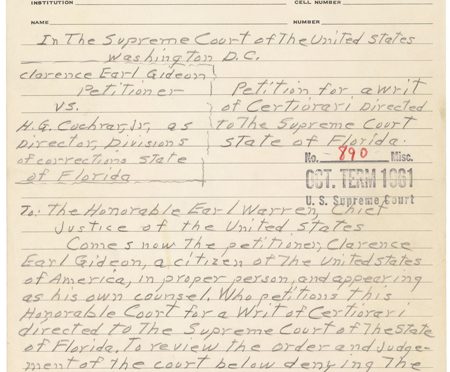 INSTITUTION CELL NUMBER
NAME NUMBER
In The Supreme Court of The United States
Washington D.C.
Clarence Earl Gideon
Petitioner
vs.
H.G. Cochran, Jr., as
Director, Divisions
of corrections state
of Florida
Petition for a writ
of Certiorari Directed
to The Supreme Court
state of Florida.
No. 890 Misc.
OCT. TERM 1961
U. S. Supreme Court
To: The Honorable Earl Warren, Chief
Justice of the United States
Comes now The petitioner, Clarence
Earl Gideon, a citizen of The United states
of America, in proper person, and appearing
as his own counsel. Who petitions this
Honorable Court for a Writ of Certiorari
directed to The Supreme Court of The state
of Florida. To review the order and Judge-
ment of the court below denying The